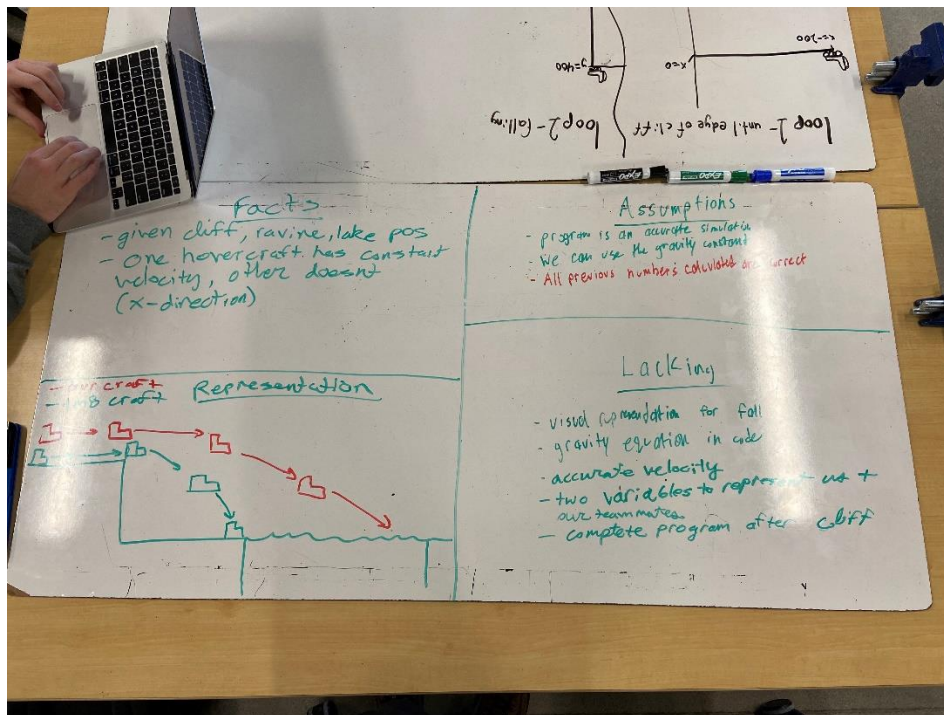 y=400
loop 2 - falling
x=0
x=-200
loop 1 - until edge of cliff
EXPO
EXPO
EXPO
Facts
- given cliff, ravine, lake pos
- One hovercraft has constant
velocity, other doesnt
(x-direction)
Assumptions
- program is an accurate simulation
- We can use the gravity constant
- All previous numbers calculated are correct
- our craft
- tm8 craft
Representation
Lacking
- visual for fall
- gravity equation in code
- accurate velocity
- two variables to represent us +
our teammates
- complete program after cliff